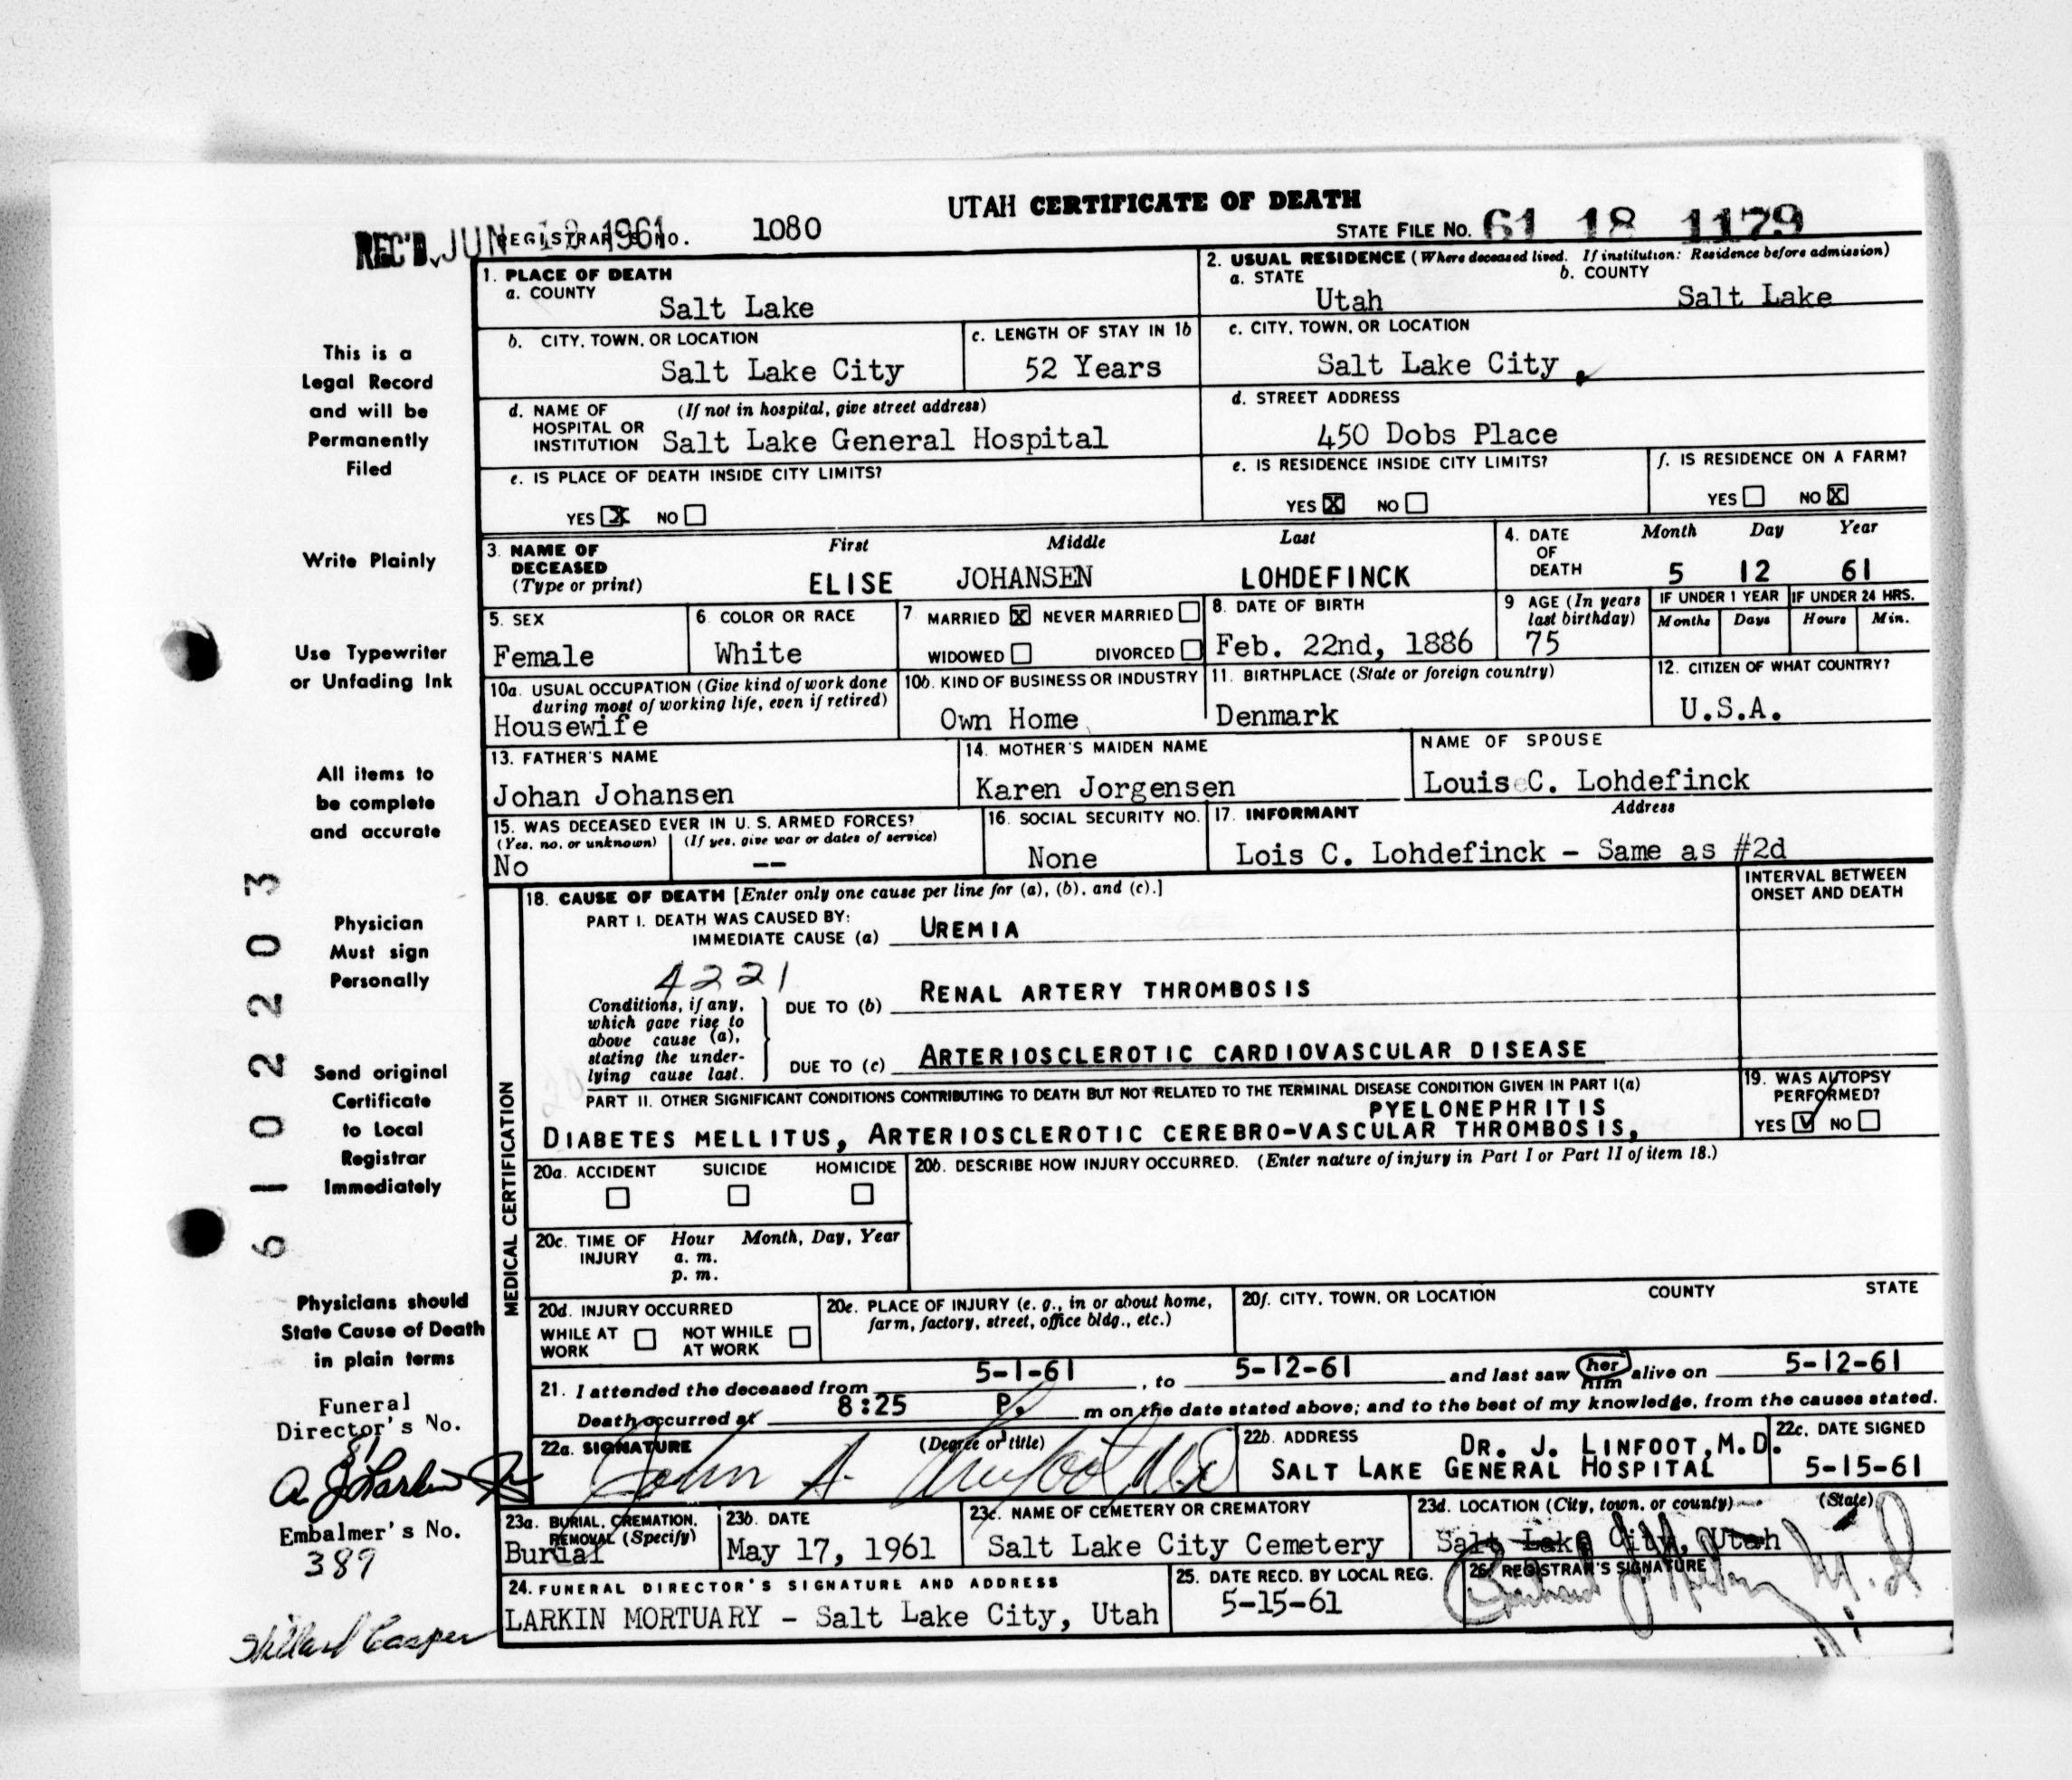 UTAH CERTIFICATE OF DEATH
REC'D. JUN 1961 REGISTRAR'S NO. 1080
STATE FILE NO. 61 18 1179
1. PLACE OF DEATH
a. COUNTY
Salt Lake
2. USUAL RESIDENCE (Where deceased lived. If institution: Residence before admission)
a. STATE b. COUNTY
Utah Salt Lake
b. CITY, TOWN, OR LOCATION
Salt Lake City
c. LENGTH OF STAY IN 1b
52 Years
c. CITY, TOWN, OR LOCATION
Salt Lake City
d. NAME OF (If not in hospital, give street address)
HOSPITAL OR
INSTITUTION Salt Lake General Hospital
d. STREET ADDRESS
450 Dobs Place
e. IS PLACE OF DEATH INSIDE CITY LIMITS?
YES X NO
e. IS RESIDENCE INSIDE CITY LIMITS?
YES X NO
f. IS RESIDENCE ON A FARM?
YES NO X
3. NAME OF DECEASED (Type or print)
First Middle Last
ELISE JOHANSEN LOHDEFINCK
4. DATE OF DEATH
Month Day Year
5 12 61
5. SEX
Female
6. COLOR OR RACE
White
7 MARRIED X NEVER MARRIED
WIDOWED DIVORCED
8. DATE OF BIRTH
Feb. 22nd, 1886
9 AGE (In years last birthday)
75
IF UNDER 1 YEAR IF UNDER 24 HRS.
Months Days Hours Min.
10a. USUAL OCCUPATION (Give kind of work done
during most of working life, even if retired)
Housewife
10b. KIND OF BUSINESS OR INDUSTRY
Own Home
11. BIRTHPLACE (State or foreign country)
Denmark
12. CITIZEN OF WHAT COUNTRY?
U.S.A.
13. FATHER'S NAME
Johan Johansen
14. MOTHER'S MAIDEN NAME
Karen Jorgensen
NAME OF SPOUSE
Louis C. Lohdefinck
15. WAS DECEASED EVER IN U. S. ARMED FORCES?
(Yes, no, or unknown) (If yes, give war or dates of service)
No --
16. SOCIAL SECURITY NO.
None
17. INFORMANT Address
Lois C. Lohdefinck - Same as #2d
MEDICAL CERTIFICATION
18. CAUSE OF DEATH [Enter only one cause per line for (a), (b), and (c).]
INTERVAL BETWEEN
ONSET AND DEATH
PART I. DEATH WAS CAUSED BY:
IMMEDIATE CAUSE (a) UREMIA
4221
Conditions, if any,
which gave rise to
above cause (a),
stating the under-
lying cause last.
DUE TO (b) RENAL ARTERY THROMBOSIS
DUE TO (c) ARTERIOSCLEROTIC CARDIOVASCULAR DISEASE
PART II. OTHER SIGNIFICANT CONDITIONS CONTRIBUTING TO DEATH BUT NOT RELATED TO THE TERMINAL DISEASE CONDITION GIVEN IN PART I(a)
PYELONEPHRITIS
DIABETES MELLITUS, ARTERIOSCLEROTIC CEREBRO-VASCULAR THROMBOSIS,
19. WAS AUTOPSY
PERFORMED?
YES V NO
20a. ACCIDENT SUICIDE HOMICIDE
20b. DESCRIBE HOW INJURY OCCURRED. (Enter nature of injury in Part I or Part II of item 18.)
20c. TIME OF INJURY
Hour Month, Day, Year
a. m.
p. m.
20d. INJURY OCCURRED
WHILE AT WORK NOT WHILE AT WORK
20e. PLACE OF INJURY (e. g., in or about home,
farm, factory, street, office bldg., etc.)
20f. CITY, TOWN, OR LOCATION COUNTY STATE
21. I attended the deceased from 5-1-61, to 5-12-61 and last saw her him alive on 5-12-61
Death occurred at 8:25 P. m on the date stated above; and to the best of my knowledge, from the causes stated.
22a. SIGNATURE (Degree or title)
John A. Linfoot MD
22b. ADDRESS DR. J. LINFOOT, M.D.
SALT LAKE GENERAL HOSPITAL
22c. DATE SIGNED
5-15-61
23a. BURIAL, CREMATION,
REMOVAL (Specify)
Burial
23b. DATE
May 17, 1961
23c. NAME OF CEMETERY OR CREMATORY
Salt Lake City Cemetery
23d. LOCATION (City, town, or county) (State)
Salt Lake City, Utah
24. FUNERAL DIRECTOR'S SIGNATURE AND ADDRESS
LARKIN MORTUARY - Salt Lake City, Utah
25. DATE RECD. BY LOCAL REG.
5-15-61
26. REGISTRAR'S SIGNATURE
This is a
Legal Record
and will be
Permanently
Filed
Write Plainly
Use Typewriter
or Unfading Ink
All items to
be complete
and accurate
Physician
Must sign
Personally
Send original
Certificate
to Local
Registrar
Immediately
Physicians should
State Cause of Death
in plain terms
Funeral
Director's No.
Embalmer's No.
389
6102203